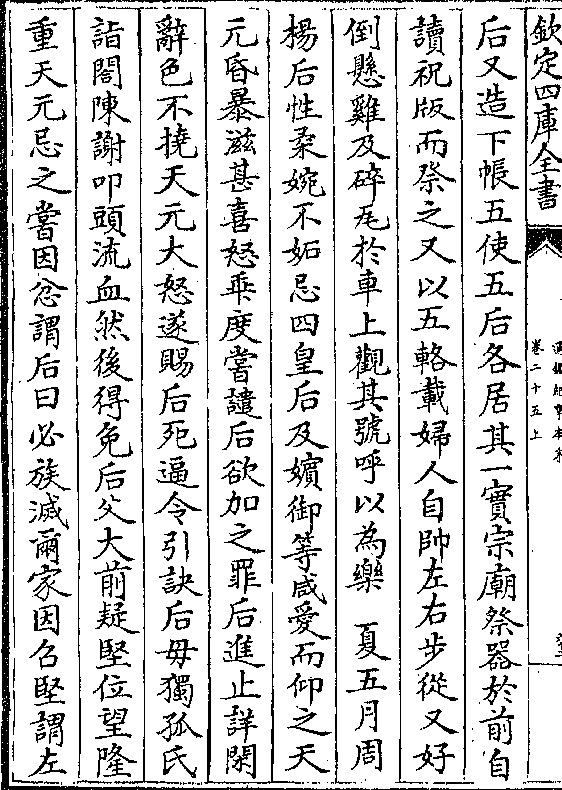 欽定四庫全書
通鑑紀事本末
卷二十五上
后又造下帳五使五后各居其一實宗廟祭器於前自
讀祝版而祭之又以五輅載婦人自帥左右步從又好
倒懸雞及碎瓦於車上觀其號呼以為樂　夏五月周
楊后性柔婉不妬忌四皇后及嬪御等咸愛而仰之天
元昏暴滋甚喜怒乖度嘗譴后欲加之罪后進止詳閑
辭色不撓天元大怒遂賜后死逼令引訣后母獨孤氏
詣閤陳謝叩頭流血然後得免后父大前疑堅位望隆
重天元忌之嘗因忿謂后曰必族滅爾家因召堅謂左